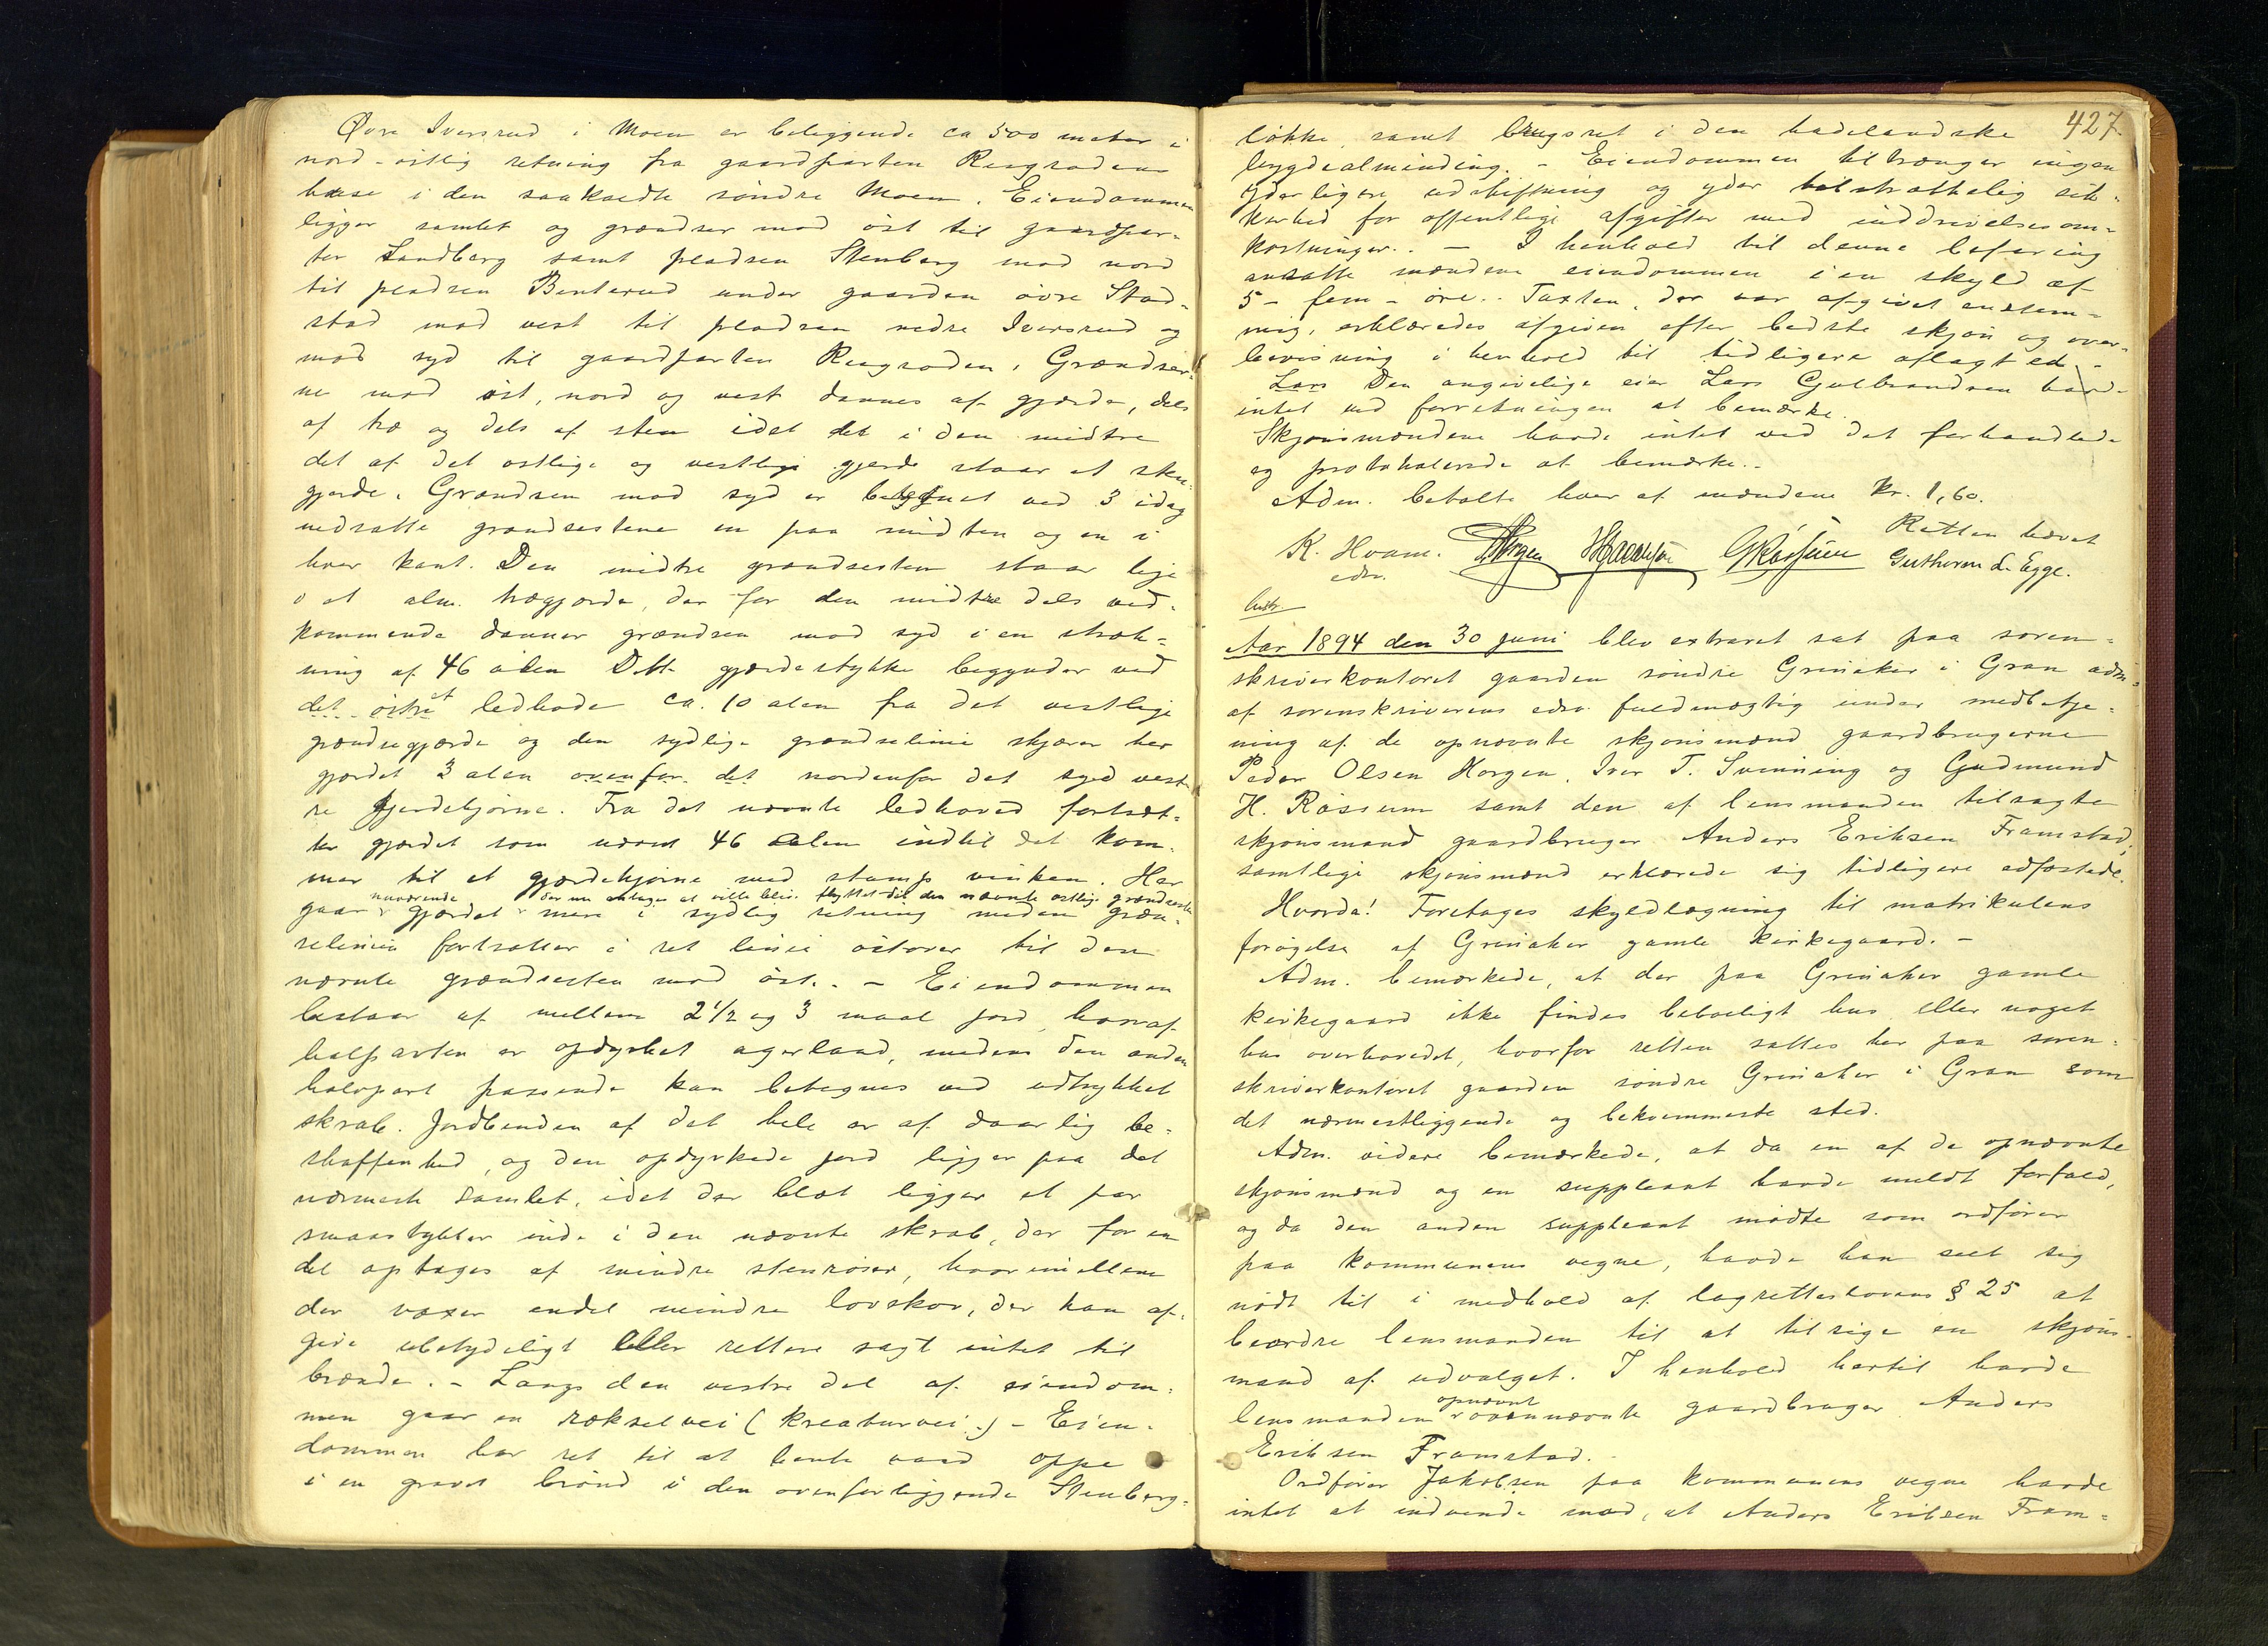 Øvre Iversrud i Moen er beliggende ca 500 meter i
nord-østlig retning fra gaardparten Raagraden
huse i den saakaldte søndre Moen. Eiendommen
ligger samlet og grændser mod øst til gaardpar-
ten Sandberg samt pladsen Stenberg mod nord
til pladsen Benterud under gaarden øvre Stad-
stad mod vest til pladsen nedre Iversrud og
mod syd til gaardparten Raagraden. Grændser-
ne mod øst, nord og vest dannes af gjærde, dels
af træ og dels af sten idet det i den midtre
del af det østlige og vestlige gjerde staar et sken
gjerde. Grændsen mod syd er betegnet ved 3 idag
nedsatte grændsestene en paa midten og en i
hver kant. Den midtre grændsesten staar lige
i et alm. trægjærde, der for den midtre dels ved-
kommende danner grændsen mod syd i en stræk-
ning af 46 alen Dette gjærdestykke begynder ved
det østre et ledhode ca. 10 alen fra det vestlige
grændsegjærde og den sydlige grændselinie skjærer her
gjerdet 3 alen ovenfor det nordenfor det syd vest-
re gjerdehjørne. Fra det nævnte ledhoved fortsæt-
ter gjerdet som nævnt 46 alen indtil det kom-
mer til et gjærdehjørne med stump vinkel. Her
nuværende der nu antages at ville bliv. flyttet til den nævnte østlige grændsesten
gaar gjærdet mere i sydlig retning medens græn-
selinien fortsætter i ret linie østover til den
nævnte grændsesten mod øst. - Eiendommen
bestaar af mellem 2 1/2 og 3 maal jord, hvoraf
halvparten er opdyrket agerland, medens den anden
halvpart passende kan betegnes ved udtrykket
skrab. Jordbunden af det hele er af daarlig be-
skaffenhed, og den opdyrkede jord ligger paa det
nærmeste samlet, idet der blot ligger et par
smaastykker inde i den nævnte skrab, der for en
del optages af mindre stenrøiser, hvorimellem
der voxer endel mindre løvskov, der kan af-
give ubetydeligt eller rettere sagt intet til
brænde. - Langs den vestre del af eiendom-
men gaar en rækselvei (kreaturvei.) - Eien-
dommen har ret til at hente vand oppe
i en gravet brønd i den ovenforliggende Stenberg-
427.
løkke, samt brugsret i den hadelandske
bygdealminding. - Eiendommen tiltrænger ingen
yderligere udskiftning og yder tilstrækkelig sik-
kerhed for offentlige afgifter med inddrivelsesom-
kostninger. - I henhold til denne befaring
ansatte mændene eiendommen i en skyld af
5 - fem - øre. Taxten, der var afgivet enstem-
mig, erklæredes afgiven efter bedste skjøn og over-
bevisning i henhold til tidligere aflagt ed.
Lars Den angivelige eier Lars Gulbrandsen havd-
intet ved forretningen at bemærke.
Skjønsmændene havde intet ved det forhandlede
og protokolerede at bemærke.
Adm. betalte hver af mændene kr. 1,60.
Retten hævet
K. Hvam. P Horgen G Røssum Guthorm L. Egge.
edsv.
Aar 1894 den 30 juni blev extraret sat paa soren-
skriverkontoret gaarden søndre Grinaker i Gran adm.
af sorenskriverens edsv. fuldmægtig under medbetje-
ning af de opnævnte skjønsmænd gaardbrugerne
Peder Olsen Horgen, Iver T. Svinning og Gudmund
H. Røssum samt den af lensmanden tilsagte
skjønsmand gaardbruger Anders Eriksen Framstad,
samtlige skjønsmænd erklærede sig tidligere edfæstede.
Hvorda! Foretages skyldlægning til matrikulens
forøgelse af Grinaker gamle kirkegaard. -
Adm. bemærkede, at der paa Grinaker gamle
kirkegaard ikke findes beboeligt hus eller noget
hus overhovedet, hvorfor retten sattes her paa soren-
skriverkontoret gaarden søndre Grinaker i Gran som
det nærmestliggende og bekvemmeste sted.
Adm. videre bemærkede, at da en af de opnævnte
skjønsmænd og en suppleant havde meldt forfald,
og da den anden suppleant mødte som ordfører
paa kommunens vegne, havde han seet sig
nødt til i medhold af lagrettelovens § 25 at
beordre lensmanden til at tilsige en skjøns-
mand af udvalget. I henhold hertil havde
opnævnt
lensmanden ovennævnte gaardbruger Anders
Eriksen Framstad.
Ordfører Jakobsen paa kommunens vegne havde
intet at indvende mod, at Anders Eriksen Fram-